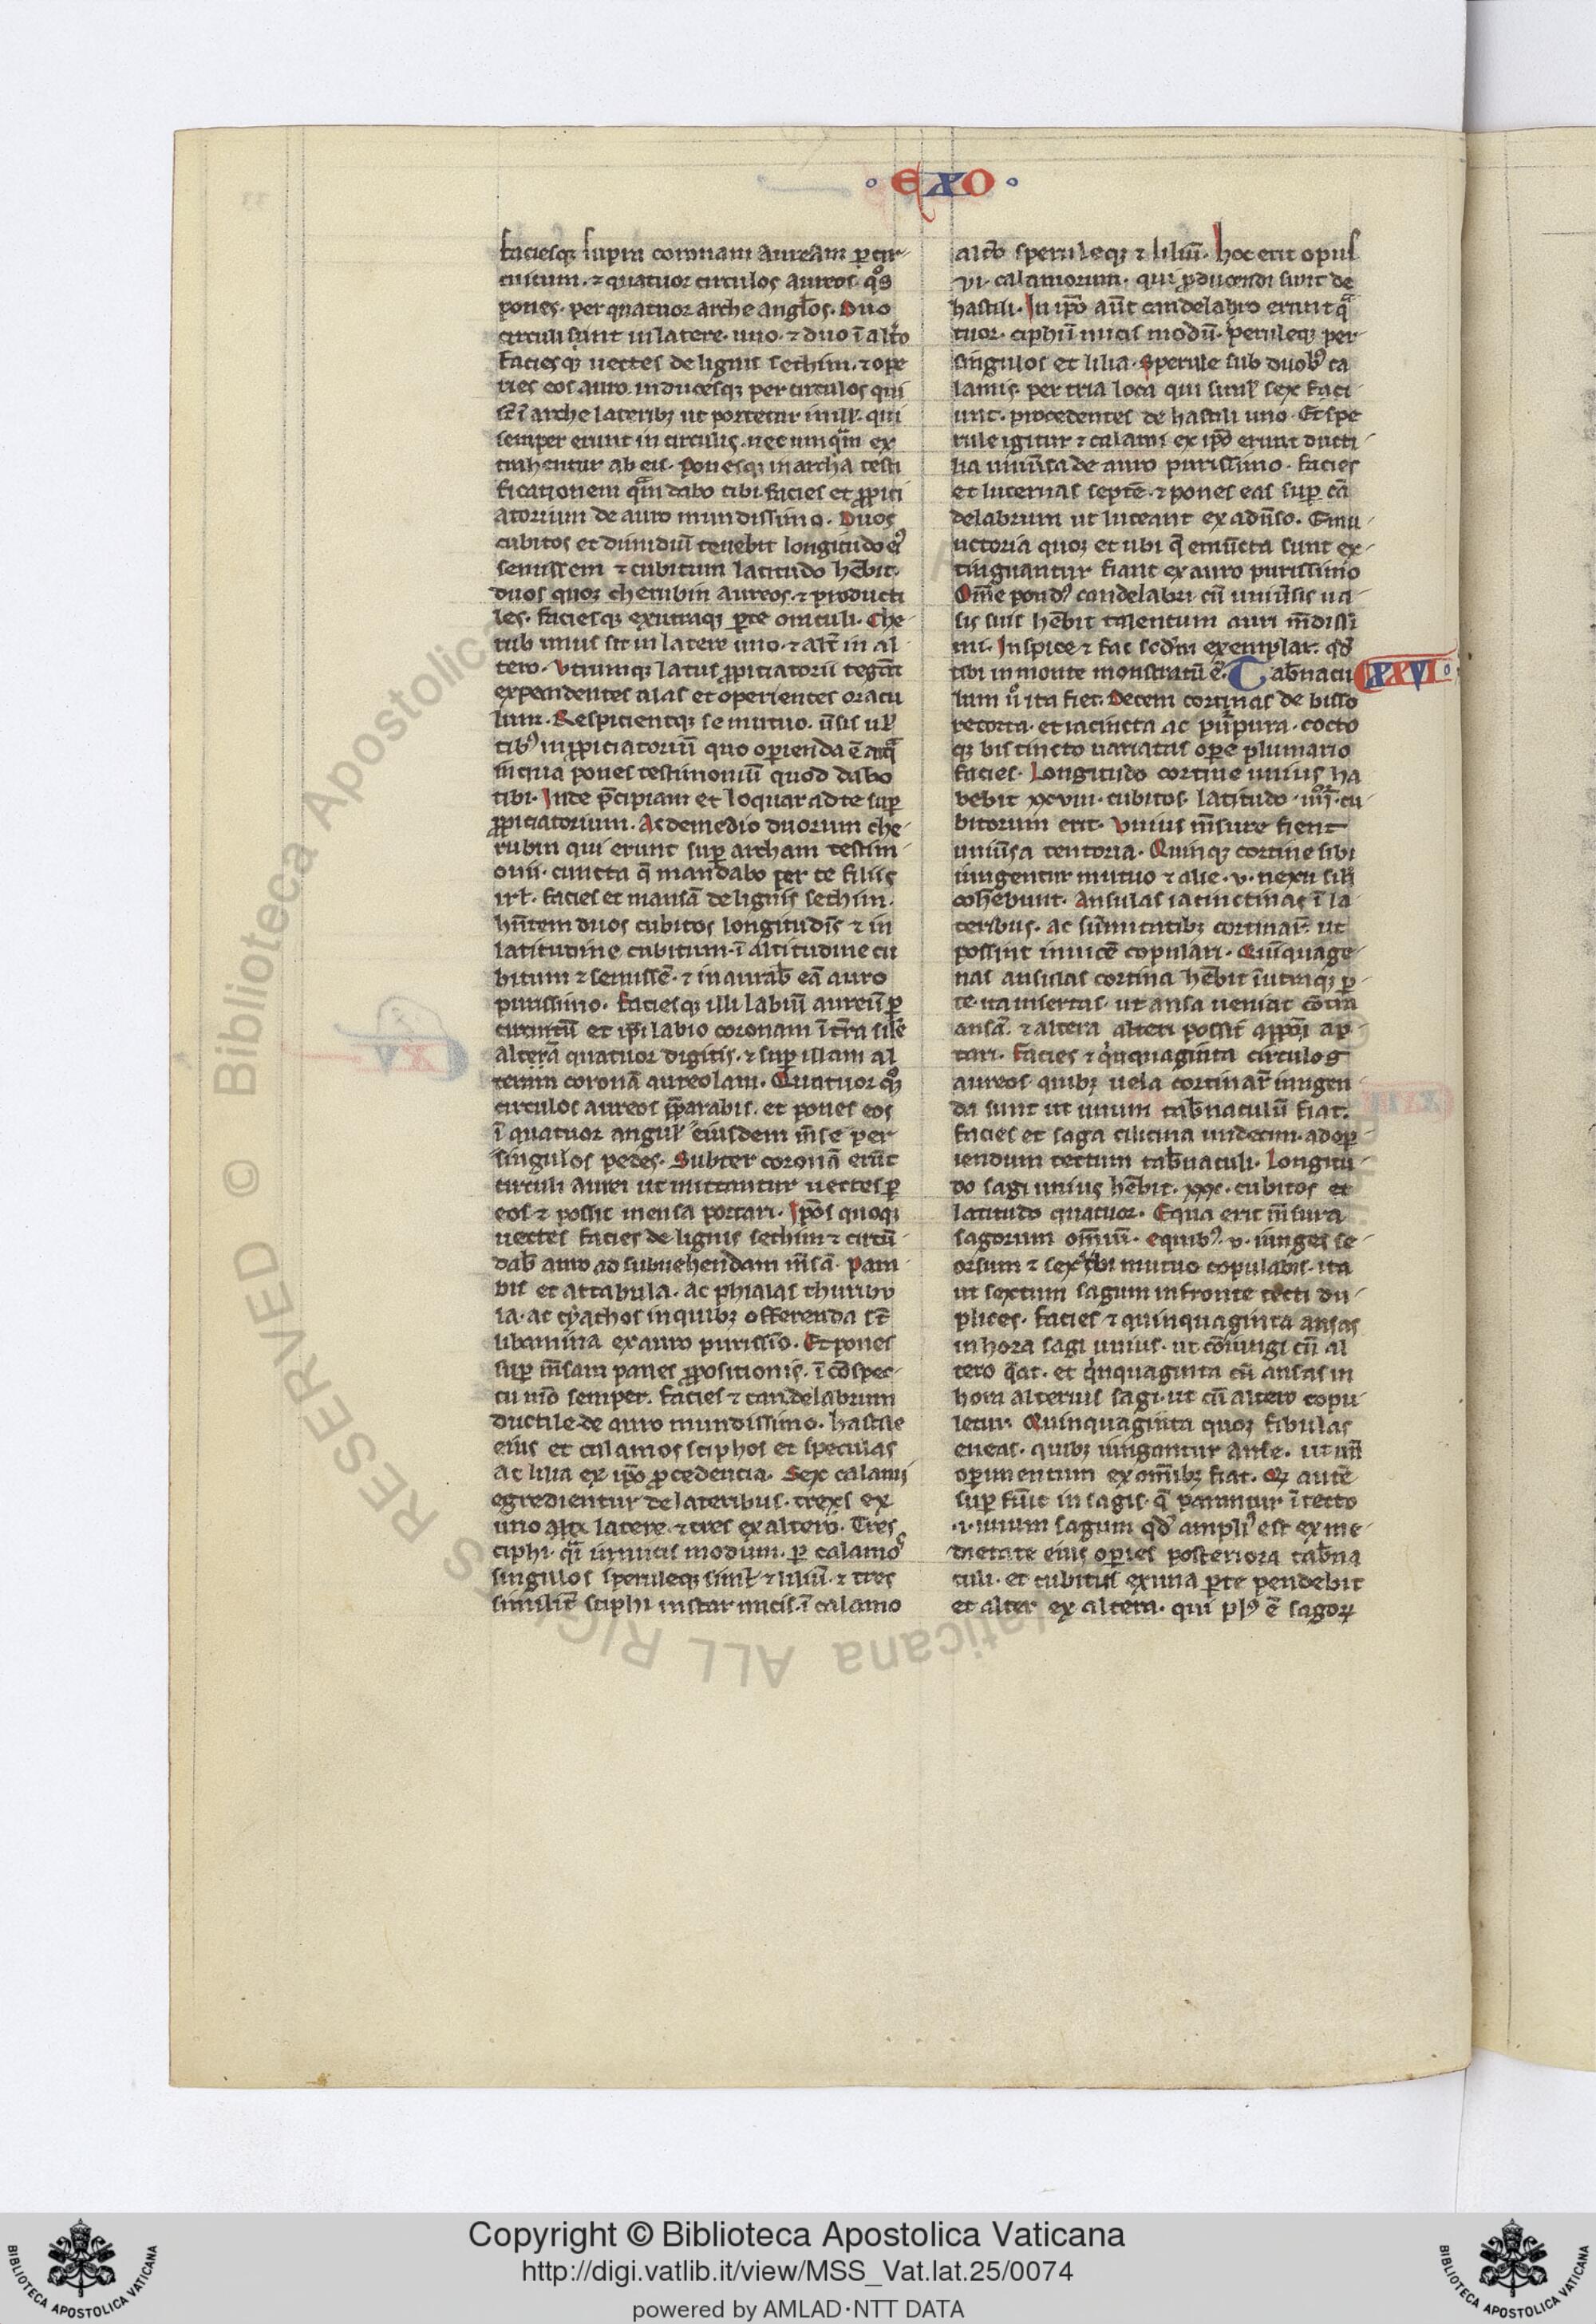 · EXO ·
faciesq; supra coronam auream p cir-
cuitum. ⁊ quatuor circulos aureos. q°s
pones. per quatuor arche angl̃os. Duo
circuli sunt in latere. uno. ⁊ duo ĩ alt̃o
faciesq; uectes de lignis sethim. ⁊ ope
ries eos auro. inducesq; per circulos qui
st̃ ĩ arche laterib; ut portetur in ill̃. qui
semper erunt in circulis. nec umqᷓm ex
trahentur ab eis. Ponesq; in archa testi
ficationem qᷓm dabo tibi. facies et ꝓpici
atorium de auro mundissimo. Duos
cubitos et dimidiũ tenebit longitudo eꝰ
semissem ⁊ cubitum latitudo hẽbit.
duos quoq; cherubin aureos. ⁊ producti
les. faciesq; ex utraq; ꝑte oraculi. Che
rub unus sit in latere uno. ⁊ alt̃ in al-
tero. Vtrumq; latus ꝓpiciatorii tegãt
expandentes alas et operientes oracu
lum. Respicientq; se mutuo. ũsis ul̃
tibꝰ in ꝓpiciatoriũ quo oꝑienda ẽ arcᷓ
in qua pones testimoniũ quod dabo
tibi. Inde p̃cipiam et loquar ad te suꝑ
ꝓpiciatorium. Ac de medio duorum che-
rubin qui erunt suꝑ archam testim-
onii. cuncta q̃ mandabo per te filiis
isrl̃. facies et mensã de lignis sethim.
hñtem duos cubitos longitudĩs ⁊ in
latitudine cubitum. ĩ altitudine cu
bitum ⁊ semissẽ. ⁊ inaurab̃ eã auro
purissimo. faciesq; illi labiũ aureũ ꝑ
circuitũ et ip̃i labio coronam ĩt̃ra silẽ
alterã quatuor digitis. ⁊ suꝑ illam al
teram coronã aureolam. Quatuor q°q;
circulos aureos p̃parabis. et pones eos
ĩ quatuor angul̃ eiusdem m̃se per
singulos pedes. Subter coronã erũt
circuli aurei ut mittantur uectes ꝑ
eos ⁊ possit mensa portari. Ip̃os quoq;
uectes facies de lignis sethim ⁊ circũ-
dab̃ auro ad subuehendam m̃sã. Para-
bis et acetabula. ac phialas thuribu
la. ac cyathos in quib; offerenda st̃
libamina ex auro purissĩo. Et pones
suꝑ m̃sam panes ꝓpositionis. ĩ cõspec-
tu m̃o semper. facies ⁊ candelabrum
ductile de auro mundissimo. hastile
eius et calamos sciphos et sperulas
ac lilia ex ip̃o ꝓcedencia. Sex calami
egredientur de lateribus. trexs ex
uno latere. ⁊ tres ex altero. Tres
ciphi. qᷓi ĩ nucis modum. ꝑ calamos
singulos speruleq; siml̃ ⁊ liliũ. ⁊ tres
similit̃ sciphi instar nucis. ĩ calamo
alt̃o speruleq; ⁊ liliũ. hoc erit opus
vi. calamorum. qui ꝓducendi sunt de
hastili. In ip̃o aũt candelabro erunt qᷓ
tuor. ciphi ĩ nucis modũ. speruleq; per
singulos et lilia. Sperule sub duobꝰ ca
lamis. per tria loca qui siml̃ sex faci-
unt. procedentes de hastili uno. Et spe
rule igitur ⁊ calami ex ip̃o erunt ducti-
lia uniũsa de auro purissimo. facies
et lucernas septẽ. ⁊ pones eas suꝑ cã
delabrum ut luceant ex adũso. Emu-
nctoria quoq; et ubi q̃ emũcta sunt ex-
tinguantur fiant ex auro purissimo
Om̃e pondꝰ candelabri cũ uniũsis ua-
sis suis hẽbit talentum auri m̃dissi
mi. Inspice ⁊ fac scd̃m exemplar. qd̃
tibi in monte monstratũ ẽ. Tab̃nacu XXVI
lum u° ita fiet. Decem cortinas de bisso
retorta. et iacincta ac purpura. cocto
q; bis tincto uariatas oꝑe plumario
facies. Longitudo cortine unius ha
bebit xxviii. cubitos. latitudo. iiii. cu-
bitorum erit. Vnius m̃sure fient
uniũsa tentoria. Quinq; cortine sibi
iungentur mutuo ⁊ alie. v. nexu sil̃i
cohẽbunt. Ansulas iacinctinas ĩ la-
teribus. ac sũmitatib; cortinar̃. ut
possint inuicẽ copulari. Quĩquage-
nas ansulas cortina hẽbit ĩ utraq; ꝑ-
te. ita insertas. ut ansa ueniat cõtra
ansã. ⁊ altera alteri possit appoĩ ap-
tari. facies ⁊ qi̇nquaginta circulos
aureos quib; uela cortinar̃ iungen-
da sunt ut unum tab̃naculũ fiat.
facies et saga cilicina undecim. ad oꝑ-
iendum tectum tab̃naculi. Longitu-
do sagi unius hẽbit. xxx. cubitos et
latitudo quatuor. Equa erit m̃sura
sagorum om̃iũ. equibꝰ. v. iunges se-
orsum ⁊ sex sibi mutuo copulabis. ita
ut sextum sagum in fronte tecti du-
plices. facies ⁊ quinquaginta ansas
in hora sagi unius. ut cõiungi cũ al
tero q̃at. et qi̇nquaginta cũ ansas in
hora alterius sagi. ut cũ altero copu-
letur. Quinquaginta quoq; fibulas
eneas. quib; iungantur anse. ut unũ
operimentum ex om̃ib; fiat. Q; autẽ
suꝑ fũit in sagis. q̃ parantur ĩ tecto
.i. unum sagum qd̃ ampliꝰ est ex me-
dietate eius oꝑies posteriora tab̃na
culi. et cubitus ex una ꝑte pendebit
et alter ex altera. qui plꝰ ẽ sagoꝝ
Copyright © Biblioteca Apostolica Vaticana
http://digi.vatlib.it/view/MSS_Vat.lat.25/0074
powered by AMLAD·NTT DATA